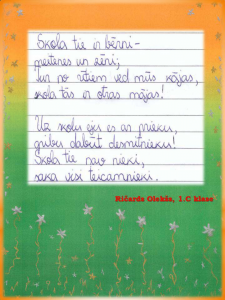 Skola tie ir bērni -
meitenes un zēni;
Tur no rītiem ved mūs kājas,
skola tās ir otras mājas!
Uz skolu eju es ar prieku,
gribu dabūt desmitnieku!
Skola tie nav nieki,
saka visi teicamnieki.
Ričards Olekšs, 1.C klase